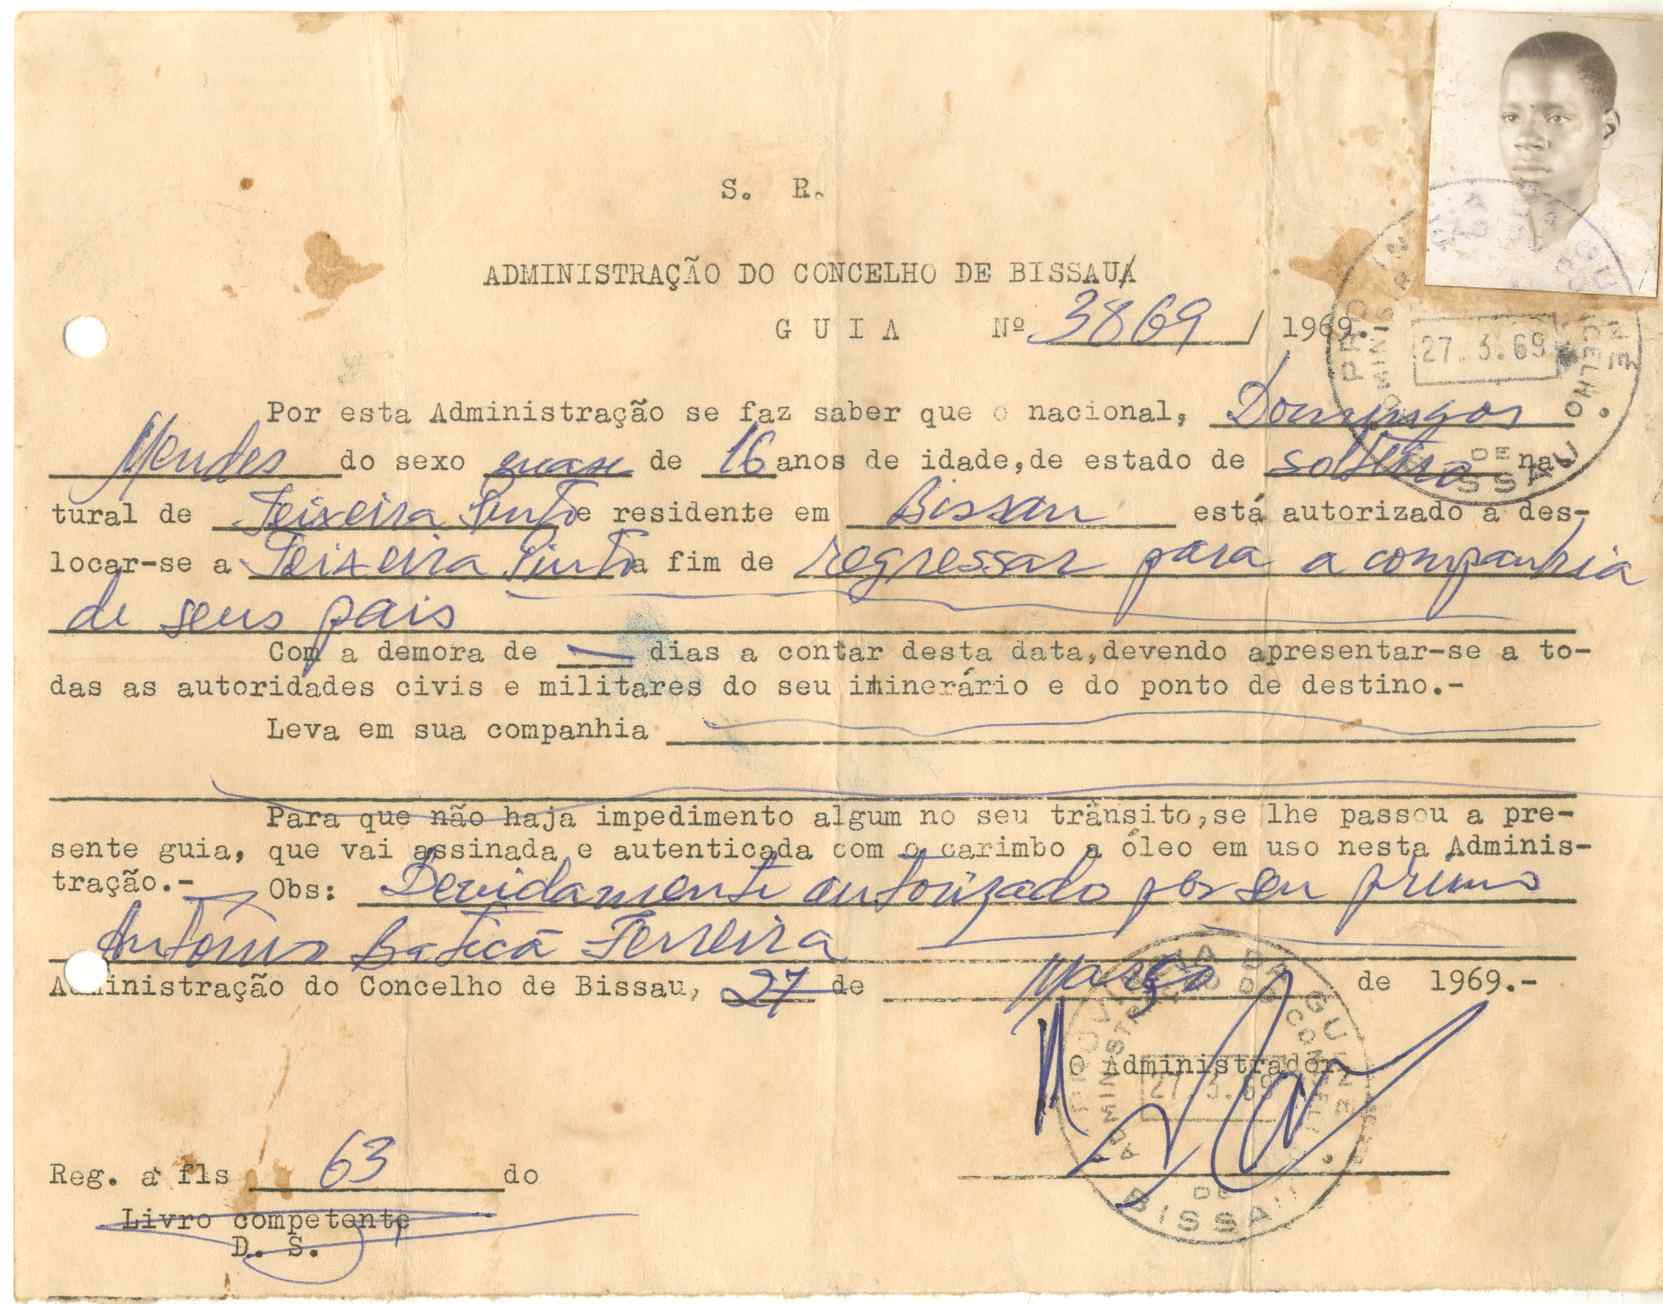 S. R.
ADMINISTRAÇÃO DO CONCELHO DE BISSAU
G U I A Nº 38/69 / 1969.
PROVÍNCIA DA GUINÉ
ADMINISTRAÇÃO DO CONCELHO
27. 3. 69
DE
BISSAU
Por esta Administração se faz saber que o nacional, Domingos
Mendes do sexo masc de 16 anos de idade, de estado de solteiro na
tural de Teixeira Pinto e residente em Bissau está autorizado a des-
locar-se a Teixeira Pinto a fim de regressar para a companhia
de seus pais
Com a demora de dias a contar desta data, devendo apresentar-se a to-
das as autoridades civis e militares do seu itinerário e do ponto de destino.-
Leva em sua companhia
Para que não haja impedimento algum no seu trânsito, se lhe passou a pre-
sente guia, que vai assinada e autenticada com o carimbo a óleo em uso nesta Adminis-
tração.- Obs: Devidamente autorizado por seu primo
António Baticã Ferreira
Administração do Concelho de Bissau, 27 de Março de 1969.-
O Administrador,
PROVÍNCIA DA GUINÉ
ADMINISTRAÇÃO DO CONCELHO
27. 3. 69
DE
BISSAU
Reg. a fls 63 do
Livro competente
D. S.